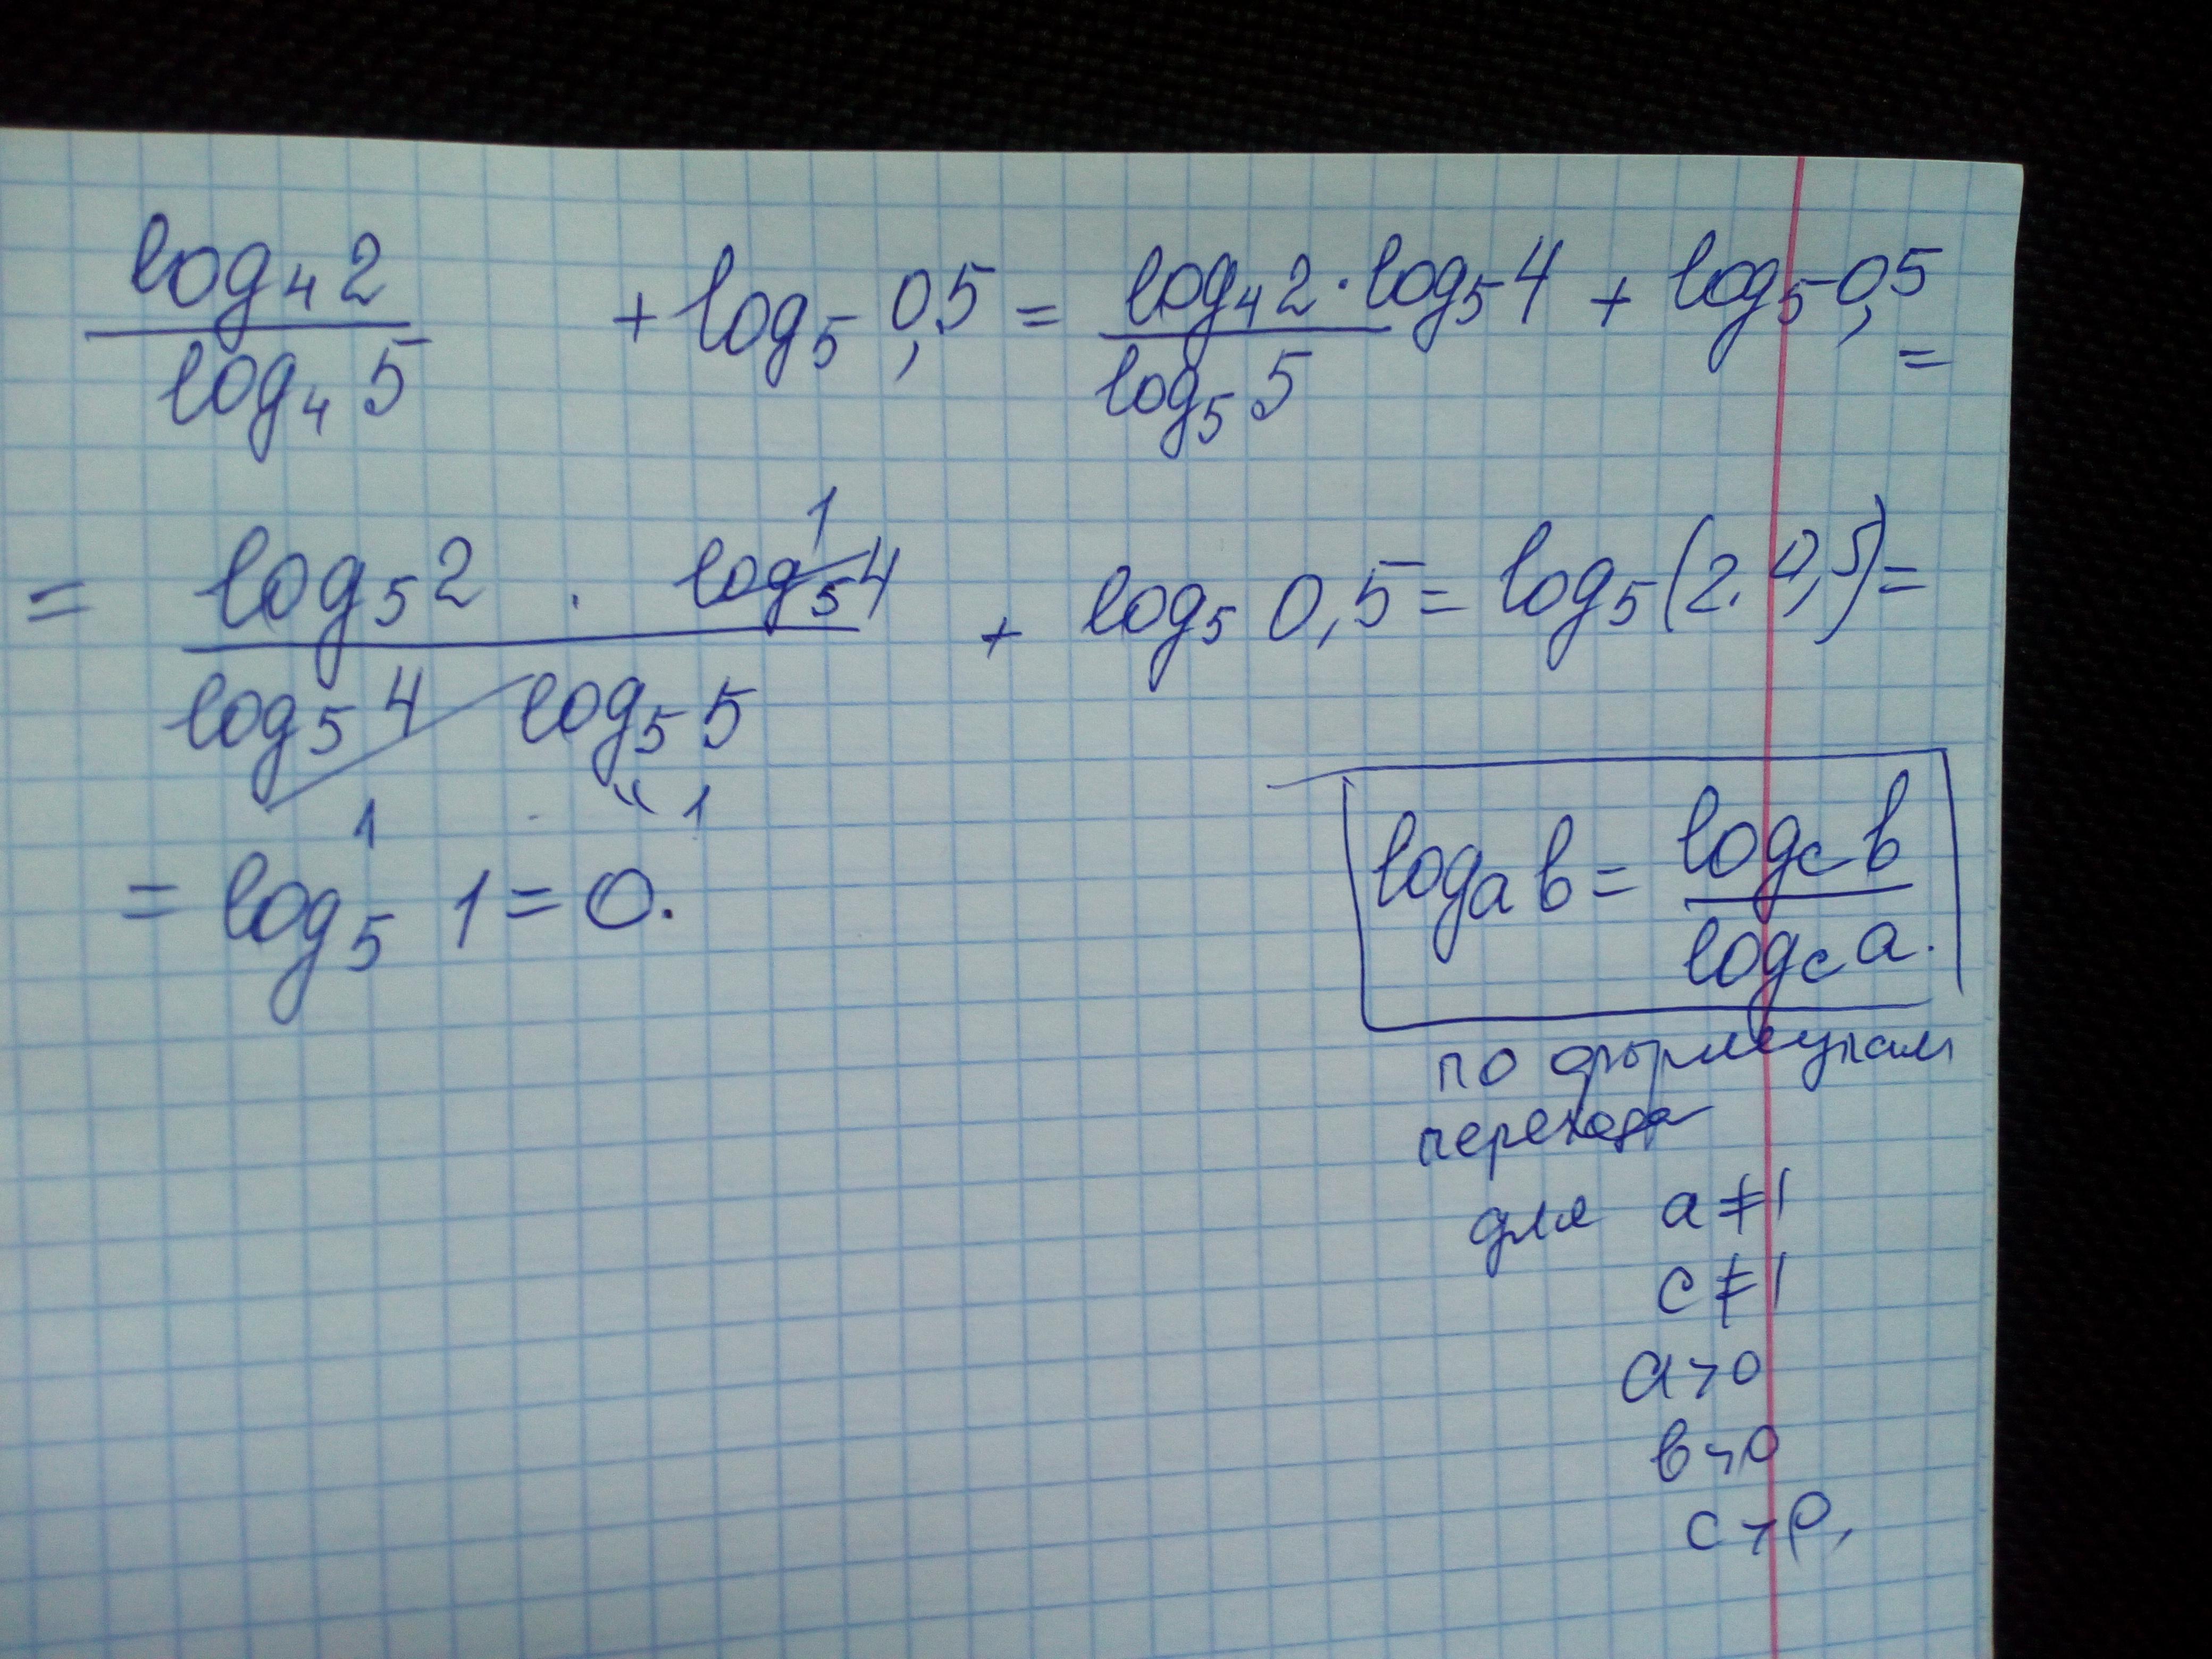 log₄ 2 / log₄ 5 + log₅ 0,5 = log₄ 2 · log₅ 4 / log₅ 5 + log₅ 0,5 =
= log₅ 2 · log₅ 4 / log₅ 4 log₅ 5 + log₅ 0,5 = log₅ (2 · 0,5) =
1
1 " 1
= log₅ 1 = 0.
logₐ b = log_c b / log_c a.
по формулам
перехода
для a ≠ 1
c ≠ 1
a > 0
b > 0
c > 0,